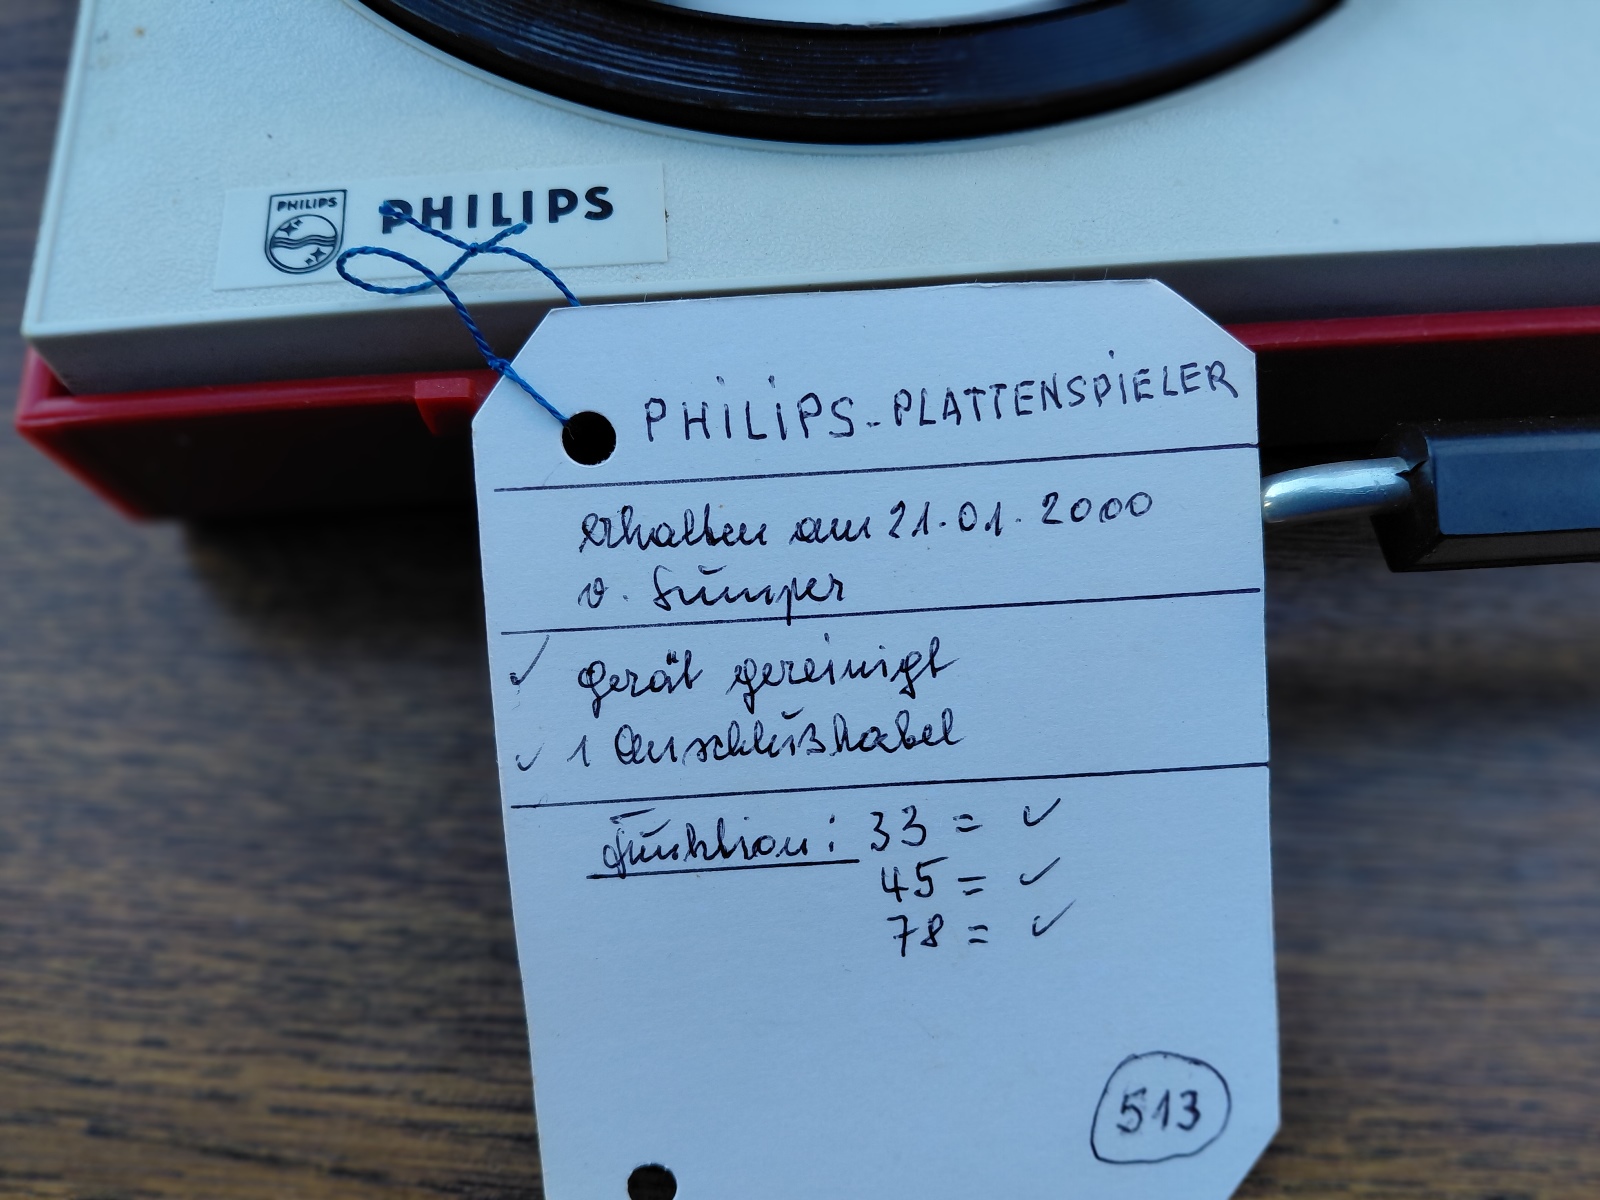 PHILIPS PHILIPS
PHILIPS-PLATTENSPIELER
erhalten am 21.01.2000
v. Sumper
✓ Gerät gereinigt
✓ 1 Anschlußkabel
Funktion: 33 = ✓
45 = ✓
78 = ✓
513